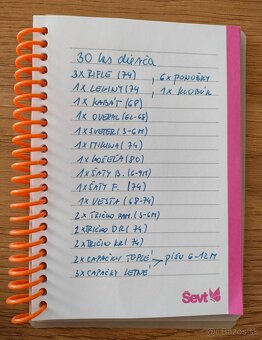 30 ks dievča
3x RIFLE (74) , 6x PONOŽKY
1x LEGÍNY (74 , 1x KLOBÚK
1x KABÁT (68)
1x OVERAL (62-68)
1x SVETER (3-6M)
1x MIKINA (74)
1x KOŠEĽA (80)
1x ŠATY B. (6-9M)
1x ŠATY F. (74)
1x VESTA (68-74)
2x TRIČKO RAM. (3-6M)
2x TRIČKO DR (74)
2x TRIČKO KR (74)
2x CAPAČKY TEPLÉ
3x CAPAČKY LETNÉ
6-12M
Sevt